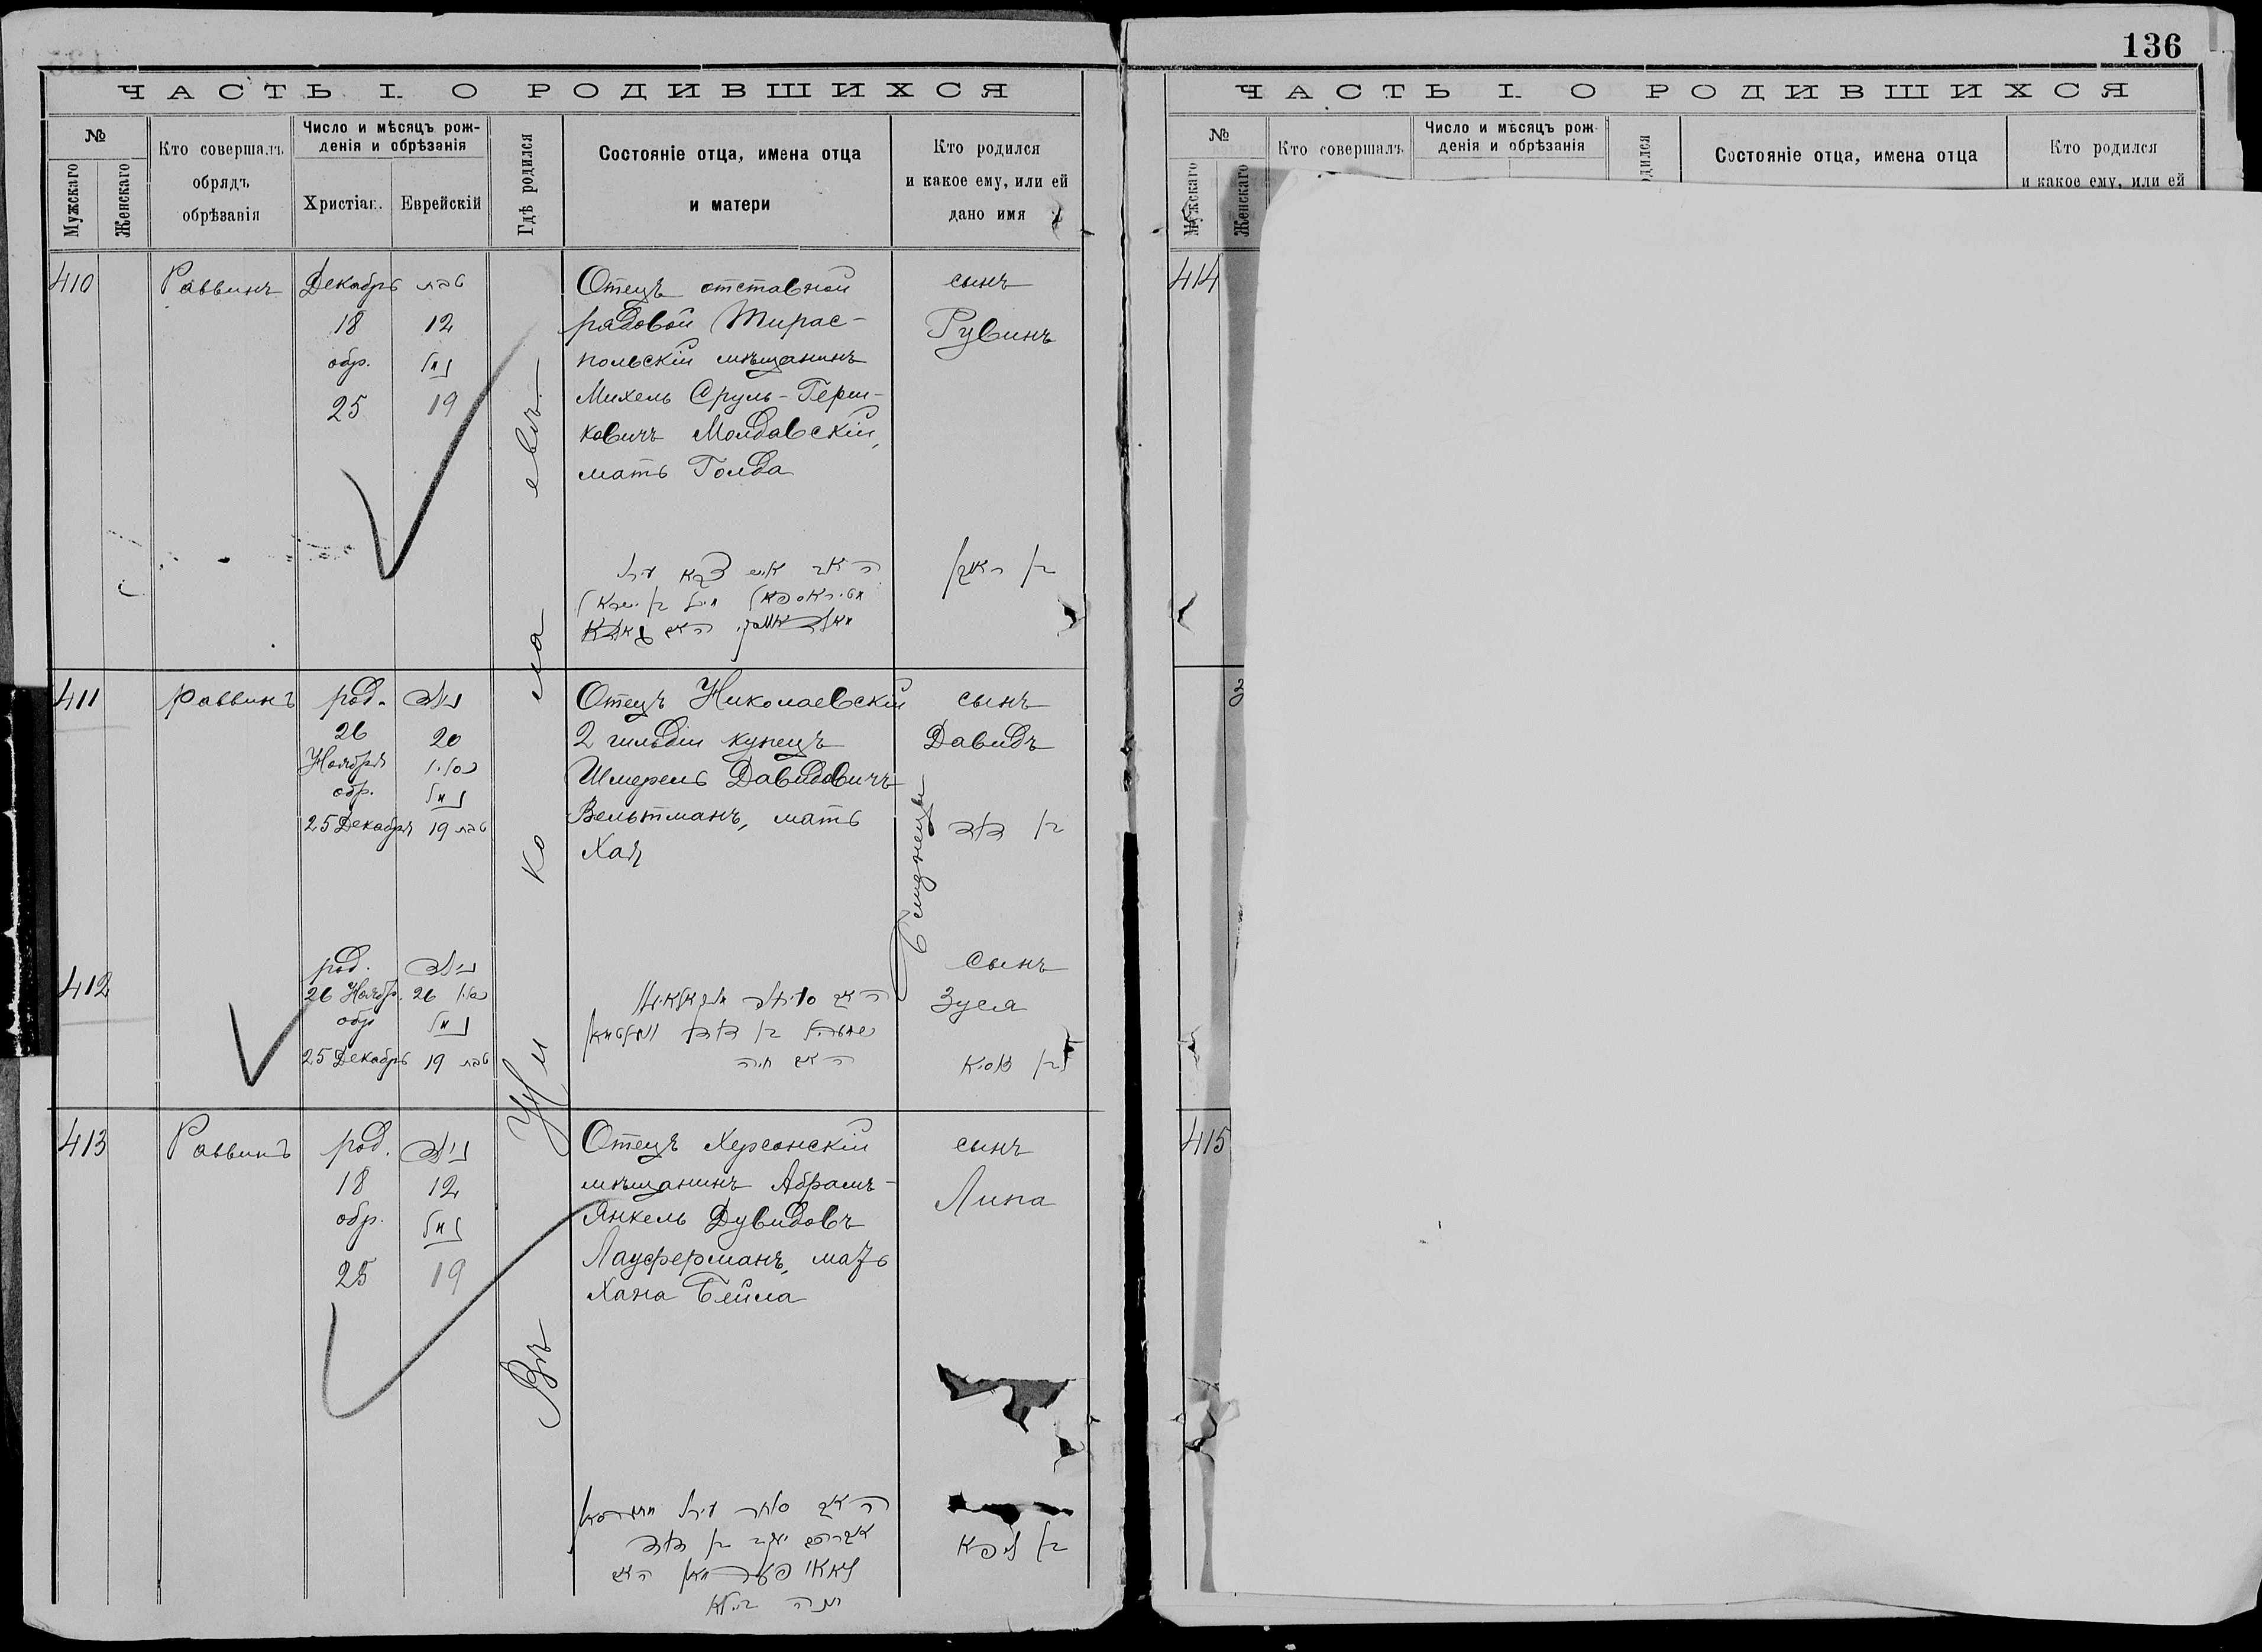 136
ЧАСТЬ I. О РОДИВШИХСЯ
№
Мужскаго
Женскаго
Кто совершалъ
обрядъ
обрѣзанія
Число и мѣсяцъ рож-
денія и обрѣзанія
Христіан.
Еврейскій
Гдѣ родился
Состояніе отца, имена отца
и матери
Кто родился
и какое ему, или ей
дано имя
410
Раввинъ
Декабрь
18
обр.
25
טבת
12
נמול
19
Отецъ отставной
рядовой Тирас-
польскій мѣщанинъ
Михель Сруль-Герш-
ковичъ Молдавскій,
мать Голда
сынъ
Рувинъ
בן ראובן
Въ Николаевѣ
411
раввинъ
род.
26
Ноября
обр.
25 Декабря
נולד
20
כסליו
נמול
19 טבת
Отецъ Николаевскій
2 гильдіи купецъ
Шмерель Давидовичъ
Вельтманъ, мать
Хая
האב
בן דוד
האם חיה
сынъ
Давидъ
בן דוד
Близнецы
412
род.
26 Ноябр.
обр
25 Декабрь
נולד
26 כסליו
נמול
19 טבת
сынъ
Зуся
בן זוסיא
413
Раввинъ
род.
18
обр.
25
נולד
12
נמול
19
Отецъ Херсонскій
мѣщанинъ Абрамъ-
Янкель Дувидовъ
Лауферманъ, мать
Хана Бейла
האב סוחר
אברהם יעקב בן דוד
האם
חנה ביילא
сынъ
Липа
בן ליפא
ЧАСТЬ I. О РОДИВШИХСЯ
№
Мужскаго
Женскаго
Кто совершалъ
Число и мѣсяцъ рож-
денія и обрѣзанія
дился
Состояніе отца, имена отца
Кто родился
и какое ему, или ей
414
415